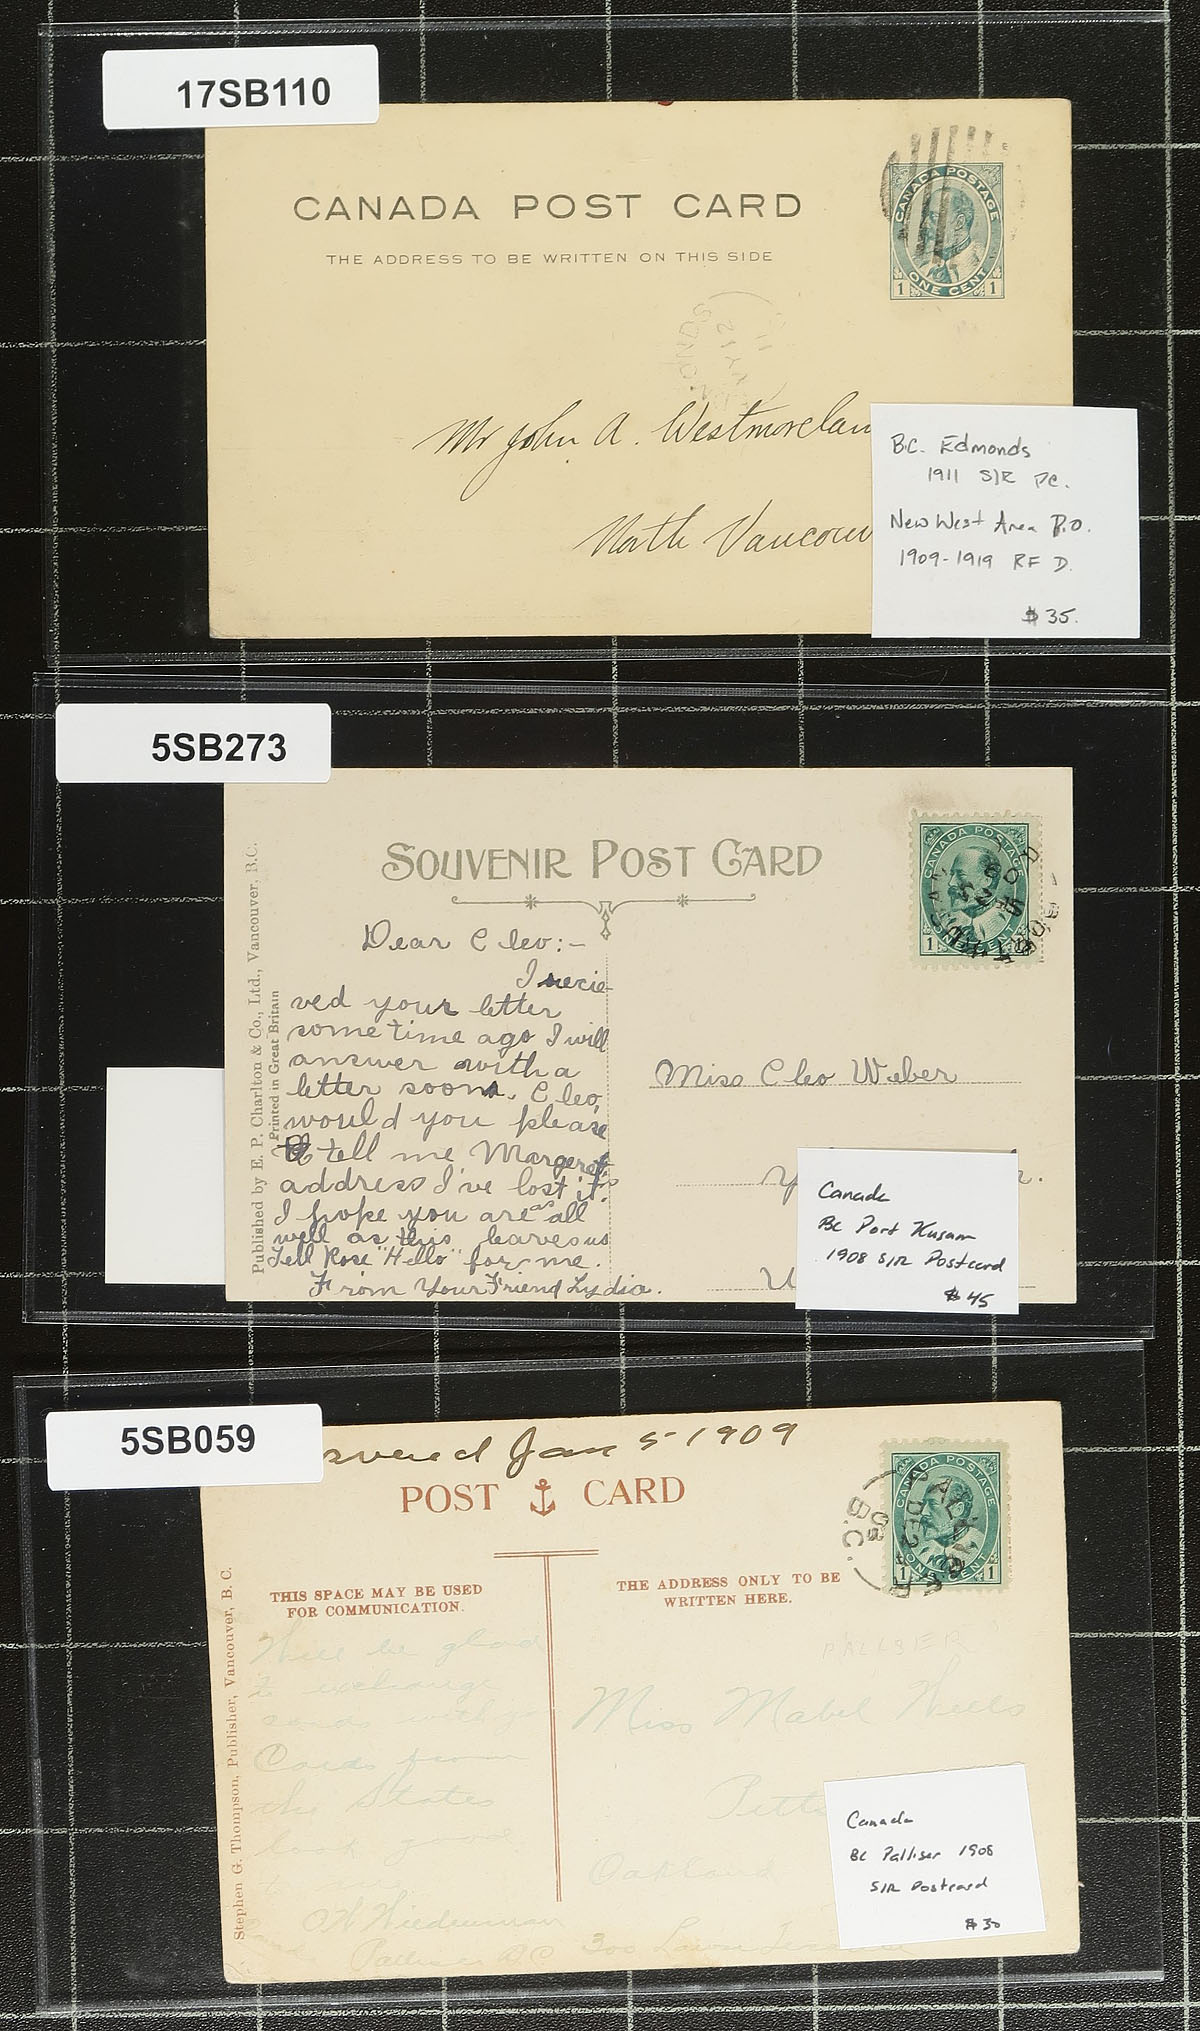 17SB110
CANADA POST CARD
THE ADDRESS TO BE WRITTEN ON THIS SIDE
CANADA POSTAGE
ONE CENT
1 1
Mr John A. Westmorelan
North Vancouv
B.C. Edmonds
1911 S/R PC.
New West Area P.O.
1909-1919 RF D.
$35.
5SB273
SOUVENIR POST CARD
CANADA POSTAGE
Published by E. P. Charlton & Co., Ltd., Vancouver, B.C.
Printed in Great Britain
Dear Cleo:-
I recie-
ved your letter
some time ago I will
answer with a
letter soon. Cleo,
would you please
tell me Margeret's
address I've lost it.
I hope you are all as
well as this leaves us
Tell Rose "Hello" for me.
From Your Friend Lydia.
Miss Cleo Weber
Canada
BC Port Kusam
1908 S/R Postcard
$45
5SB059
swered Jan 5-1909
POST CARD
CANADA POSTAGE
B.C.
THIS SPACE MAY BE USED
FOR COMMUNICATION.
THE ADDRESS ONLY TO BE
WRITTEN HERE.
Stephen G. Thompson, Publisher, Vancouver, B. C.
PALLISER
Will be glad
to exchange
cards with you
Cards from
the States
look good
to me
O.W. Wiedenman
Palliser BC
Miss Mabel Wells
Pitts
Oakland
300 Lawn
Canada
BC Palliser 1908
S/R Postcard
$30